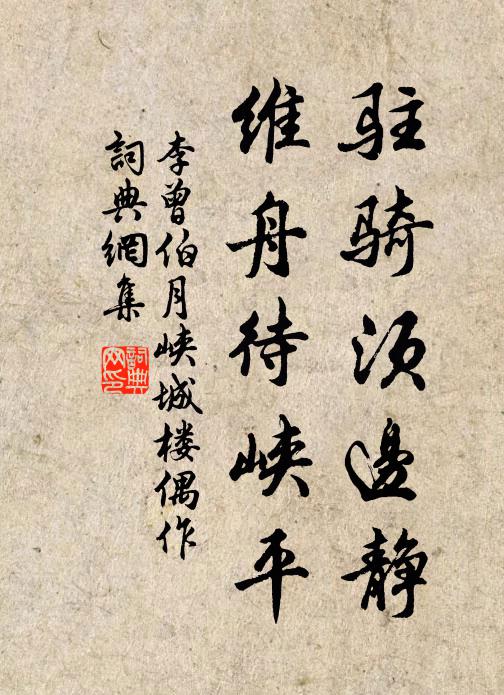 驻骑须邊静
維舟待峡平
李曾伯月峡城楼偶作
詞典網集
詞典网印